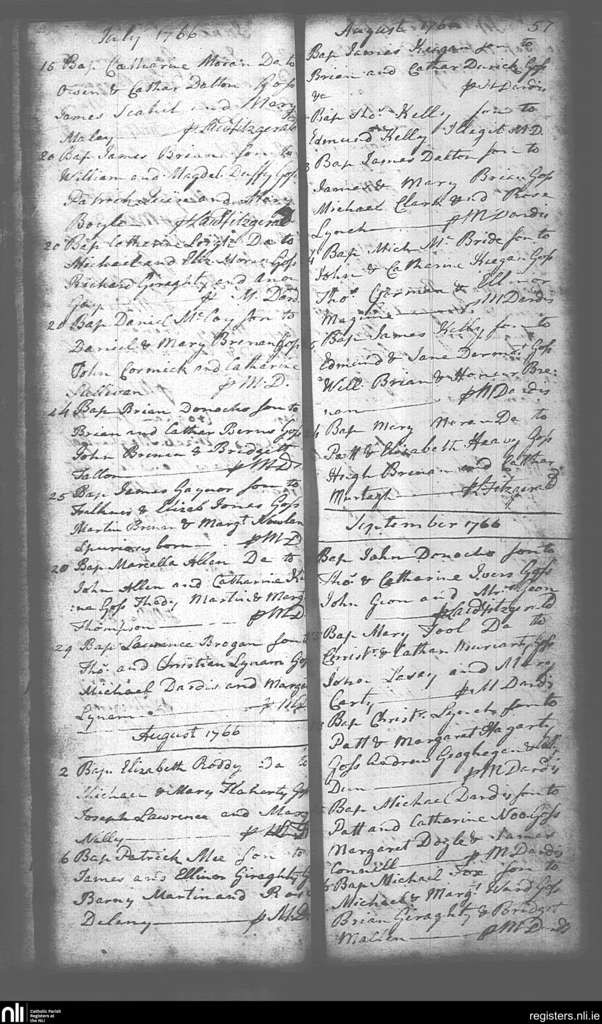 July 1766
15 Bap Catharine Moran Da to
Owen & Cathar Dalton Goss
James Scahil and Mary
Maley p Fitzgerald
20 Bap James Brian son to
William and Magdel Duffy Goss
Patrick and Mary
Boyle p Fitzgerald
20 Bap Catherin Da to
Michael and Eliz Goss
Richard Geraghty and
p M. Dard
20 Bap Daniel McCoy son to
Daniel & Mary Brenan Goss
John Cormick and Catherine
Sullivan p M: D.
24 Bap Brian Donocho son to
Brian and Cathar Berns Goss
John Brenan & Bridgett
Fallon p M: D
25 Bap James Gaynor son to
Faulkner & Elizab Jones Goss
Martin Brenan & Margt Nowlan
Spurious born p M: D
20 Bap Marcella Allen Da to
John Allen and Catharine
Goss Thady Martin & Marg
Thompson p M: D
29 Bap Lawrence Brogan son to
Thos and Christian Lynam Goss
Michael Dardis and Margar
Lynam p M D
August 1766
2 Bap Elizabeth Roddy Da to
Michael & Mary Flaherty Goss
Joseph Lawrence and Mary
Nally p M D
6 Bap Patrick Mee son to
James and Ellinor Giraghty G
Barny Martin and Rose
Delany p M: D
August 1766 57
Bap James Keegan son to
Brian and Cathar Goss
&c p M Dardis
Bap Thos Kelly son to
Edmund Kelly Illegit M: D.
Bap James Dalton son to
James & Mary Brian Goss
Michael Clark and Rose
Lynch p M Dardis
Bap Mich Mc Bride son to
John & Catherine Keegan Goss
Thos German & Ellinor
p M Dardis
Bap James Kelly son to
Edmund & Jane Goss
Will Brian & Honour Bre-
nan p M Dardis
Bap Mary Moran Da to
Patt & Elizabeth Heavy Goss
Hugh Brenan and Cathar
Murtagh p Fitzgerald
September 1766
Bap John Donocho son to
Thos & Catherine Ivers Goss
John Geon and Geon
p Fitzgerald
Bap Mary Tool Da to
Christr & Cathar Muriarty Goss
John Casey and Mary
Carty p M Dardis
Bap Christr Lynch son to
Patt & Margaret Hagarty
Goss Andrew Geoghegan &
Dun p M Dardis
Bap Michael Dardis son to
Patt and Catharine Goss
Margaret Doyle & James
Connell p M Dardis
Bap Michael Fox son to
Michael & Margt Ward Goss
Brian Giraghty & Bridget
Mallen p M Dardis
nli
Catholic Parish
Registers at
the NLI
registers.nli.ie